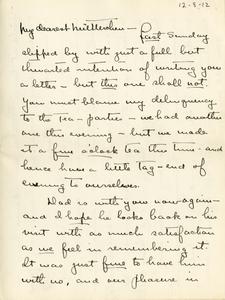 12-8-12
My dearest Mutterchen — Last Sunday
slipped by with just a full but
thwarted intention of writing you
a letter — but this one shall not.
You must blame my delinquency
to the tea-parties — we had another
one this evening — but we made
it a five o'clock tea this time — and
hence have a little tag-end of
evening to ourselves.
Dad is with you now again —
and I hope he looks back on his
visit with as much satisfaction
as we feel in remembering it.
It was just fine to have him
with us, and our pleasure in